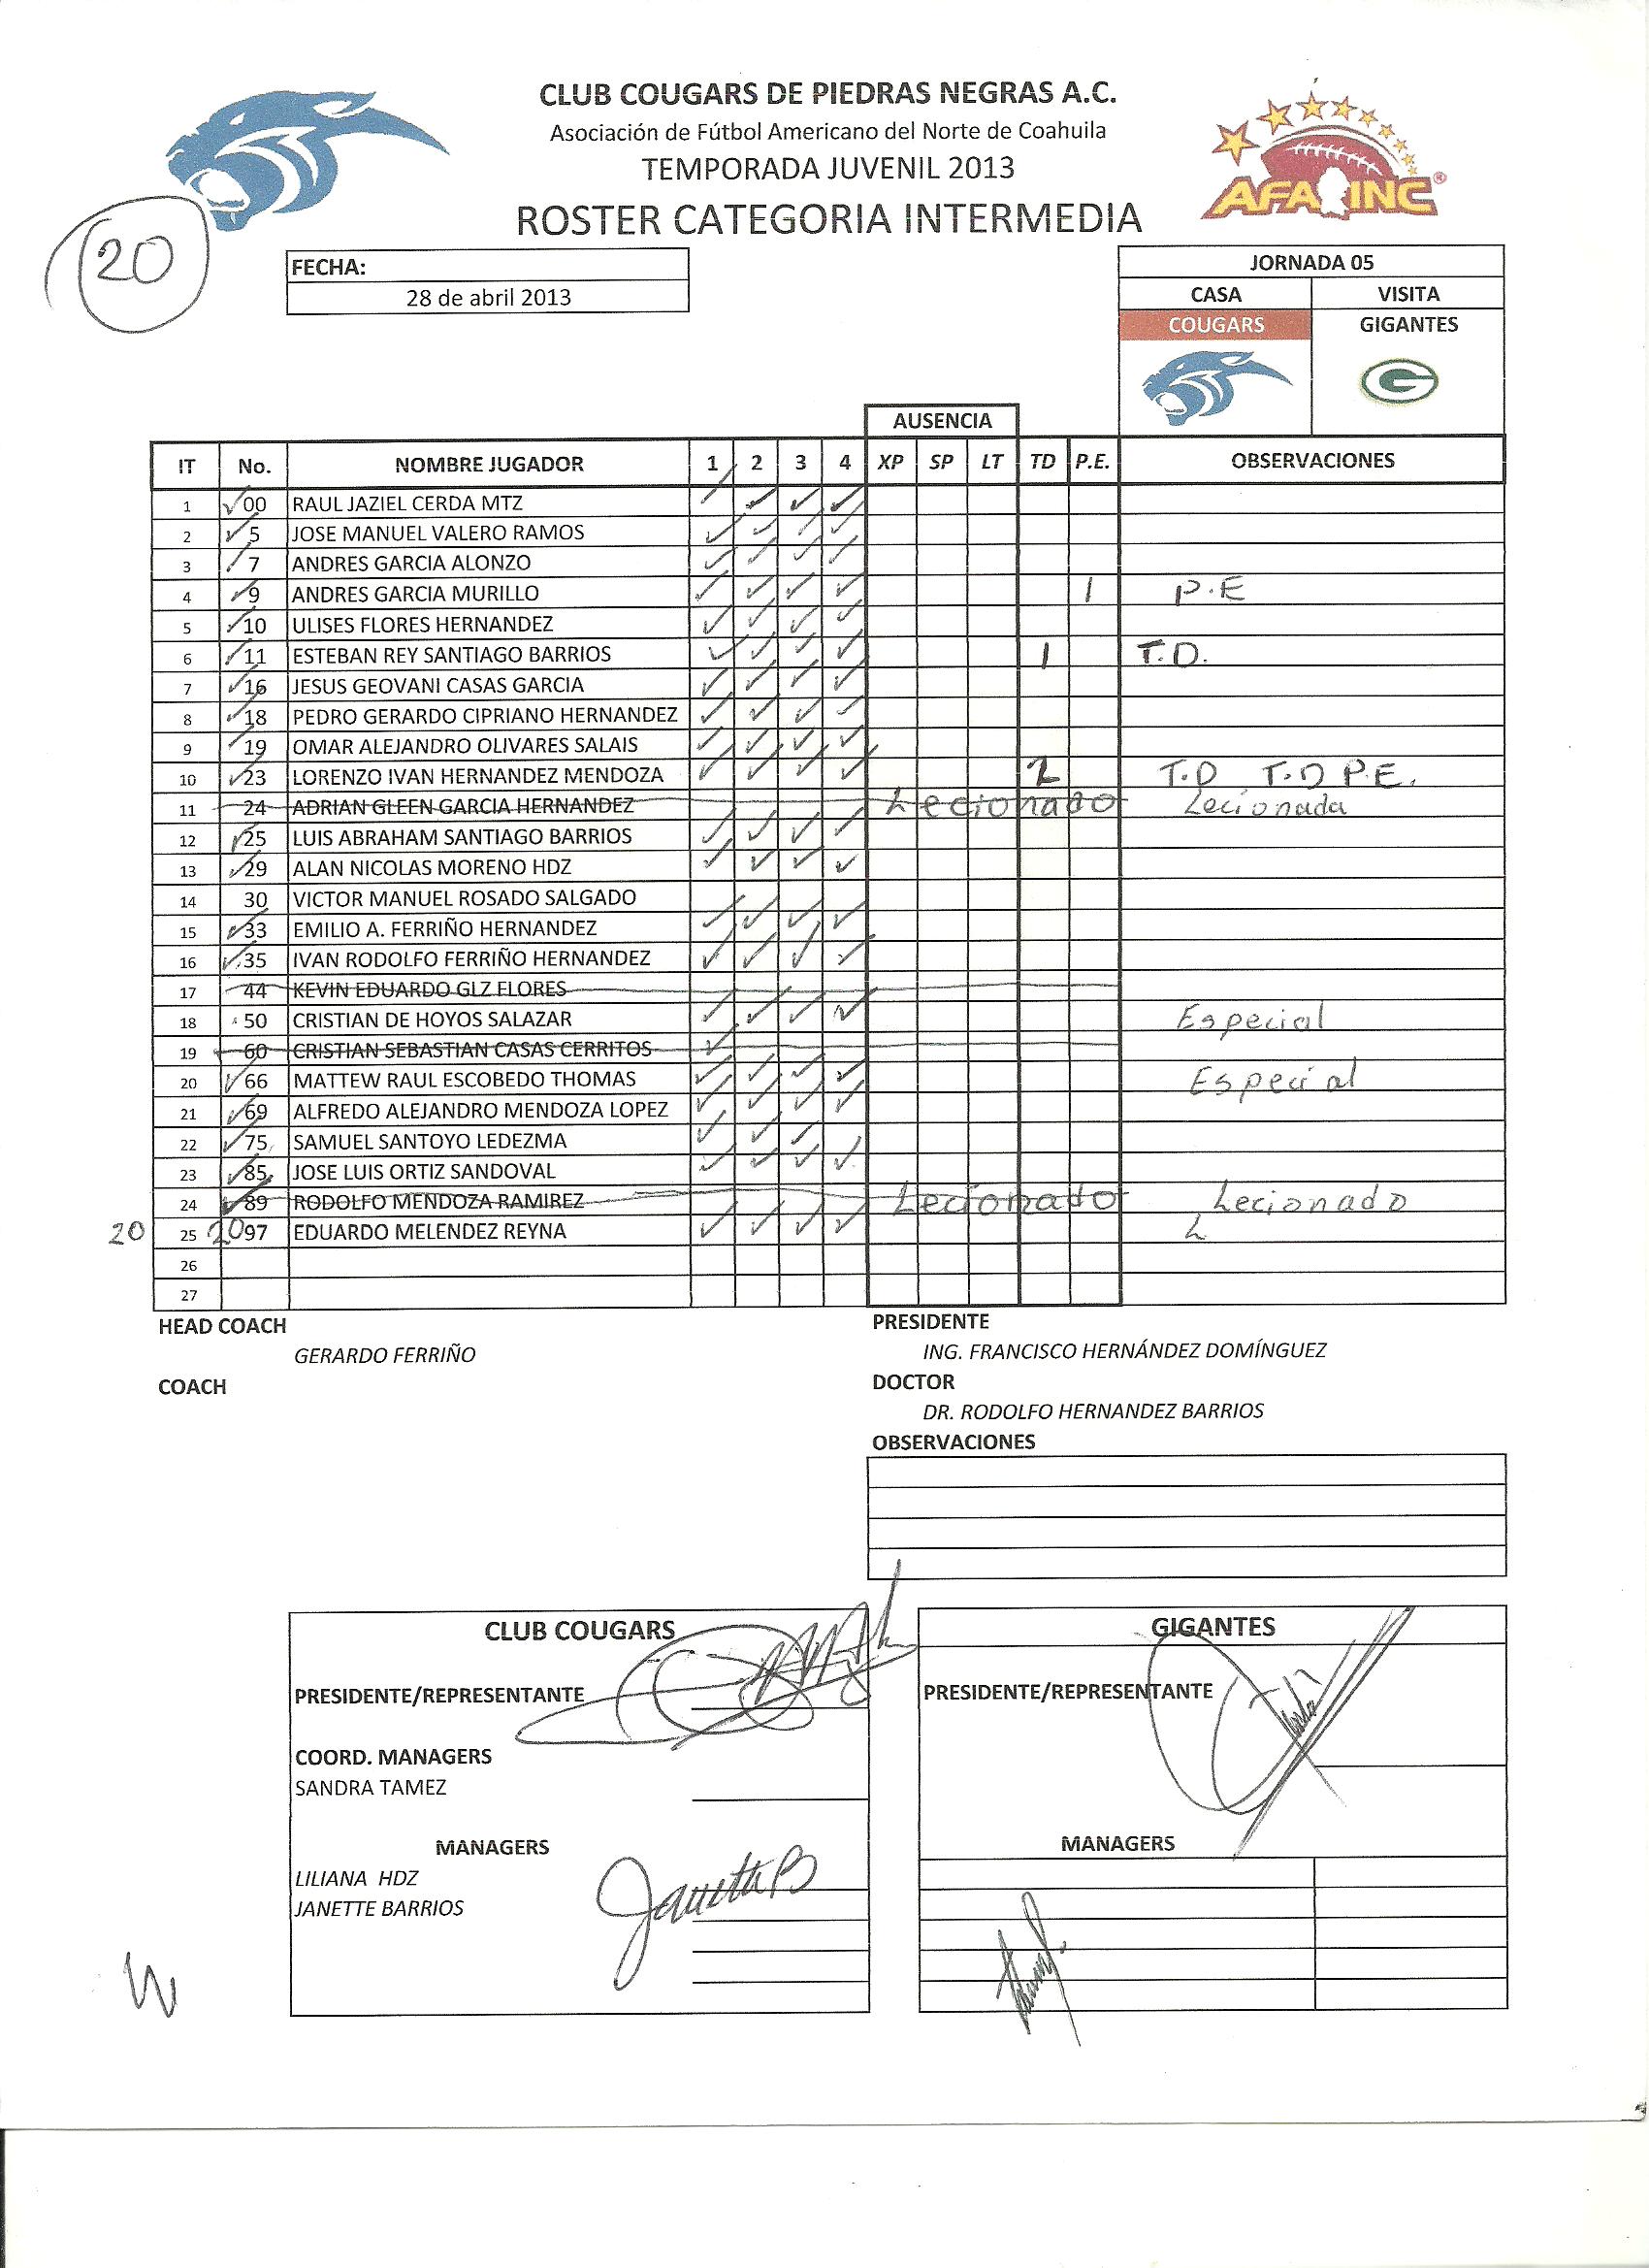 CLUB COUGARS DE PIEDRAS NEGRAS A.C.
Asociación de Fútbol Americano del Norte de Coahuila
TEMPORADA JUVENIL 2013
ROSTER CATEGORIA INTERMEDIA
AFA INC ®
20
FECHA:
28 de abril 2013
JORNADA 05
CASA VISITA
COUGARS GIGANTES
G
AUSENCIA
IT No. NOMBRE JUGADOR 1 2 3 4 XP SP LT TD P.E. OBSERVACIONES
1 ✓00 RAUL JAZIEL CERDA MTZ ✓ ✓ ✓ ✓
2 ✓5 JOSE MANUEL VALERO RAMOS ✓ ✓ ✓ ✓
3 ✓7 ANDRES GARCIA ALONZO ✓ ✓ ✓ ✓
4 ✓9 ANDRES GARCIA MURILLO ✓ ✓ ✓ ✓ 1 P.E
5 ✓10 ULISES FLORES HERNANDEZ ✓ ✓ ✓ ✓
6 ✓11 ESTEBAN REY SANTIAGO BARRIOS ✓ ✓ ✓ ✓ 1 T.D.
7 ✓16 JESUS GEOVANI CASAS GARCIA ✓ ✓ ✓ ✓
8 ✓18 PEDRO GERARDO CIPRIANO HERNANDEZ ✓ ✓ ✓ ✓
9 ✓19 OMAR ALEJANDRO OLIVARES SALAIS ✓ ✓ ✓ ✓
10 ✓23 LORENZO IVAN HERNANDEZ MENDOZA ✓ ✓ ✓ ✓ 2 T.D T.D P.E.
11 24 ADRIAN GLEEN GARCIA HERNANDEZ Lecionado Lecionada
12 ✓25 LUIS ABRAHAM SANTIAGO BARRIOS ✓ ✓ ✓ ✓
13 ✓29 ALAN NICOLAS MORENO HDZ ✓ ✓ ✓ ✓
14 30 VICTOR MANUEL ROSADO SALGADO
15 ✓33 EMILIO A. FERRIÑO HERNANDEZ ✓ ✓ ✓ ✓
16 ✓35 IVAN RODOLFO FERRIÑO HERNANDEZ ✓ ✓ ✓ ✓
17 44 KEVIN EDUARDO GLZ FLORES
18 50 CRISTIAN DE HOYOS SALAZAR ✓ ✓ ✓ ✓ Especial
19 60 CRISTIAN SEBASTIAN CASAS CERRITOS ✓
20 ✓66 MATTEW RAUL ESCOBEDO THOMAS ✓ ✓ ✓ ✓ Especial
21 ✓69 ALFREDO ALEJANDRO MENDOZA LOPEZ ✓ ✓ ✓ ✓
22 ✓75 SAMUEL SANTOYO LEDEZMA ✓ ✓ ✓ ✓
23 ✓85 JOSE LUIS ORTIZ SANDOVAL ✓ ✓ ✓ ✓
24 ✓89 RODOLFO MENDOZA RAMIREZ Lecionado Lecionado
20 25 20 97 EDUARDO MELENDEZ REYNA ✓ ✓ ✓ ✓ L
26
27
HEAD COACH PRESIDENTE
GERARDO FERRIÑO ING. FRANCISCO HERNÁNDEZ DOMÍNGUEZ
COACH DOCTOR
DR. RODOLFO HERNANDEZ BARRIOS
OBSERVACIONES
CLUB COUGARS
PRESIDENTE/REPRESENTANTE
COORD. MANAGERS
SANDRA TAMEZ
MANAGERS
LILIANA HDZ
JANETTE BARRIOS
Janette B
GIGANTES
PRESIDENTE/REPRESENTANTE
MANAGERS